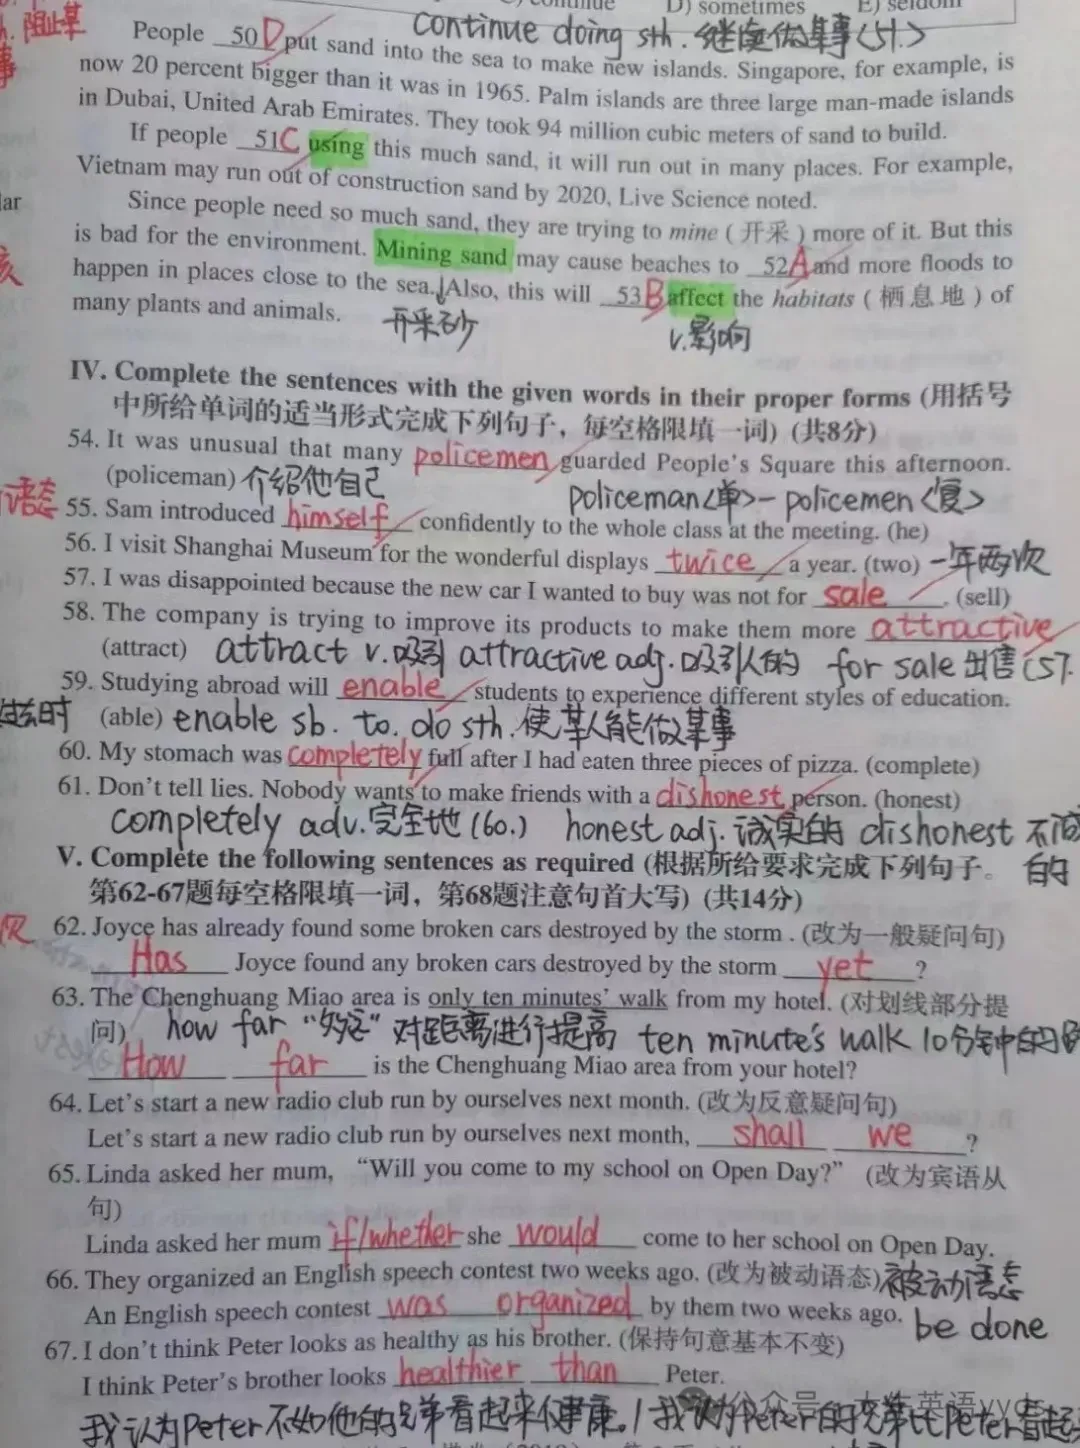 continue D) sometimes E) seldom
阻止某
continue doing sth. 继续做某事(51.)
People 50 D put sand into the sea to make new islands. Singapore, for example, is
now 20 percent bigger than it was in 1965. Palm islands are three large man-made islands
in Dubai, United Arab Emirates. They took 94 million cubic meters of sand to build.
If people 51 C using this much sand, it will run out in many places. For example,
Vietnam may run out of construction sand by 2020, Live Science noted.
Since people need so much sand, they are trying to mine (开采) more of it. But this
is bad for the environment. Mining sand may cause beaches to 52 A and more floods to
happen in places close to the sea. Also, this will 53 B affect the habitats (栖息地) of
many plants and animals. 开采砂 v.影响
IV. Complete the sentences with the given words in their proper forms (用括号
中所给单词的适当形式完成下列句子，每空格限填一词) (共8分)
54. It was unusual that many policemen guarded People's Square this afternoon.
(policeman) 介绍他自己 policeman<单>-policemen<复>
语态
55. Sam introduced himself confidently to the whole class at the meeting. (he)
56. I visit Shanghai Museum for the wonderful displays twice a year. (two) 一年两次
57. I was disappointed because the new car I wanted to buy was not for sale. (sell)
58. The company is trying to improve its products to make them more attractive
(attract) attract v.吸引 attractive adj.吸引人的 for sale 出售(57.
59. Studying abroad will enable students to experience different styles of education.
(able) enable sb. to. do sth.使某人能做某事
60. My stomach was completely full after I had eaten three pieces of pizza. (complete)
61. Don't tell lies. Nobody wants to make friends with a dishonest person. (honest)
completely adv.完全地(60.) honest adj.诚实的 dishonest 不诚
的
V. Complete the following sentences as required (根据所给要求完成下列句子。
第62-67题每空格限填一词，第68题注意句首大写) (共14分)
62. Joyce has already found some broken cars destroyed by the storm . (改为一般疑问句)
Has Joyce found any broken cars destroyed by the storm yet ?
63. The Chenghuang Miao area is only ten minutes' walk from my hotel. (对划线部分提
问) how far "多远" 对距离进行提高 ten minute's walk 10分钟的
How far is the Chenghuang Miao area from your hotel?
64. Let's start a new radio club run by ourselves next month. (改为反意疑问句)
Let's start a new radio club run by ourselves next month, shall we ?
65. Linda asked her mum, “Will you come to my school on Open Day?” (改为宾语从
句)
Linda asked her mum if/whether she would come to her school on Open Day.
66. They organized an English speech contest two weeks ago. (改为被动语态) 被动语态
An English speech contest was organized by them two weeks ago. be done
67. I don't think Peter looks as healthy as his brother. (保持句意基本不变)
I think Peter's brother looks healthier than Peter.
我认为Peter不如他的兄弟看起来健康。/我认为Peter的兄弟比Peter看起